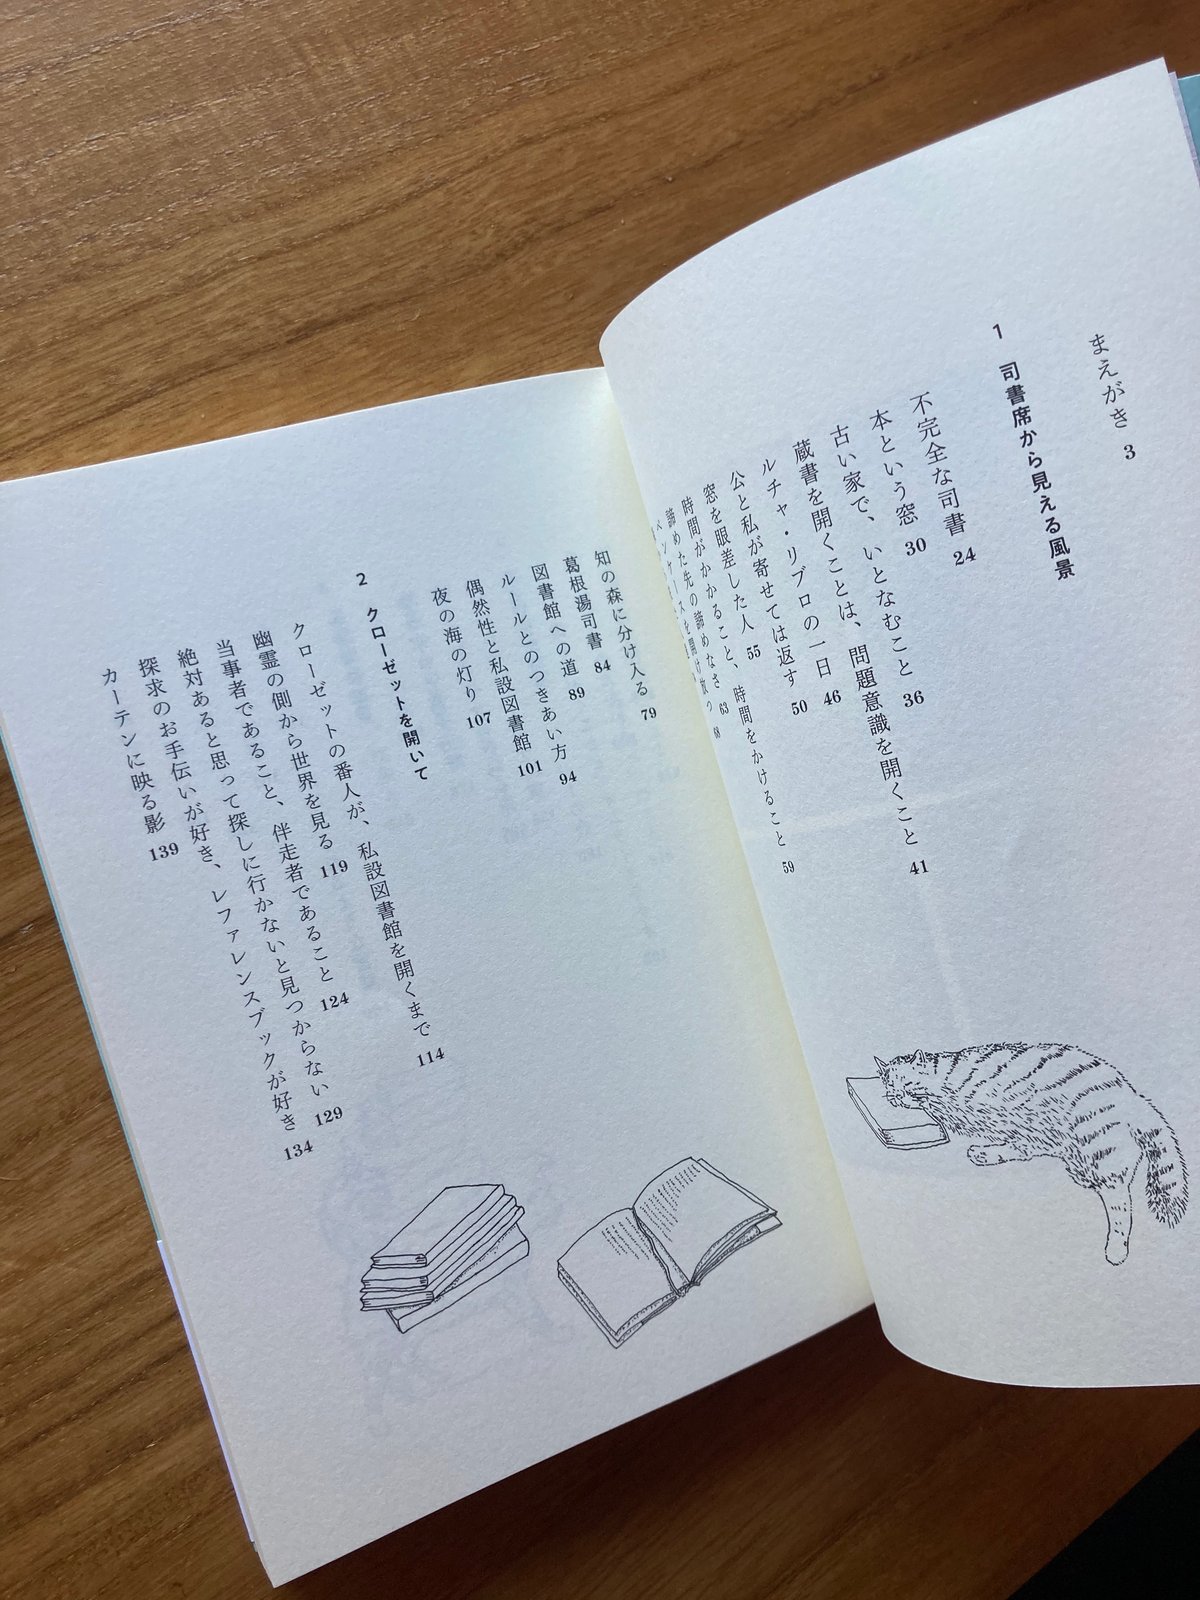 まえがき 3
1 司書席から見える風景
不完全な司書 24
本という窓 30
古い家で、いとなむこと 36
蔵書を開くことは、問題意識を開くこと 41
ルチャ・リブロの一日 46
公と私が寄せては返す 50
窓を眼差した人 55
時間がかかること、時間をかけること 59
諦めた先の諦めなさ 63
ペンケースを開け放つ 68
知の森に分け入る 79
葛根湯司書 84
図書館への道 89
ルールとのつきあい方 94
偶然性と私設図書館 101
夜の海の灯り 107
2 クローゼットを開いて
クローゼットの番人が、私設図書館を開くまで 114
幽霊の側から世界を見る 119
当事者であること、伴走者であること 124
絶対あると思って探しに行かないと見つからない 129
探求のお手伝いが好き、レファレンスブックが好き 134
カーテンに映る影 139